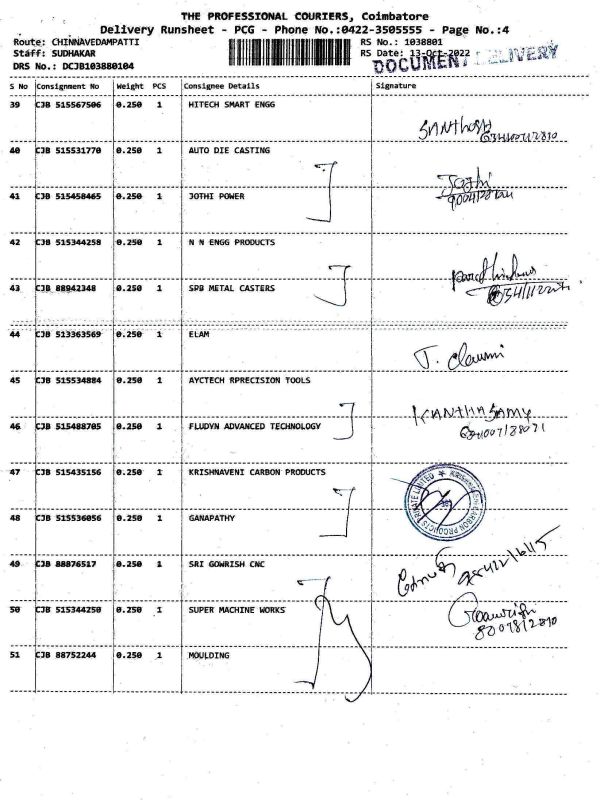 THE PROFESSIONAL COURIERS, Coimbatore
Delivery Runsheet - PCG - Phone No.:0422-3505555 - Page No.:4
Route: CHINNAVEDAMPATTI RS No.: 1038801
Staff: SUDHAKAR RS Date: 13-Oct-2022
DOCUMENT DELIVERY
DRS No.: DCJB103880104
S No Consignment No Weight PCS Consignee Details Signature
39 CJB 515567506 0.250 1 HITECH SMART ENGG
SANTHOSH
40 CJB 515531770 0.250 1 AUTO DIE CASTING
Jothi
41 CJB 515458465 0.250 1 JOTHI POWER
42 CJB 515344258 0.250 1 N N ENGG PRODUCTS
43 CJB 88942348 0.250 1 SPB METAL CASTERS
44 CJB 513363569 0.250 1 ELAM
45 CJB 515534884 0.250 1 AYCTECH RPRECISION TOOLS
KANTHASAMY
46 CJB 515488705 0.250 1 FLUDYN ADVANCED TECHNOLOGY
47 CJB 515435156 0.250 1 KRISHNAVENI CARBON PRODUCTS
KRISHNAVENI CARBON PRODUCTS PRIVATE LIMITED
48 CJB 515536056 0.250 1 GANAPATHY
49 CJB 88876517 0.250 1 SRI GOWRISH CNC
50 CJB 515344250 0.250 1 SUPER MACHINE WORKS
51 CJB 88752244 0.250 1 MOULDING